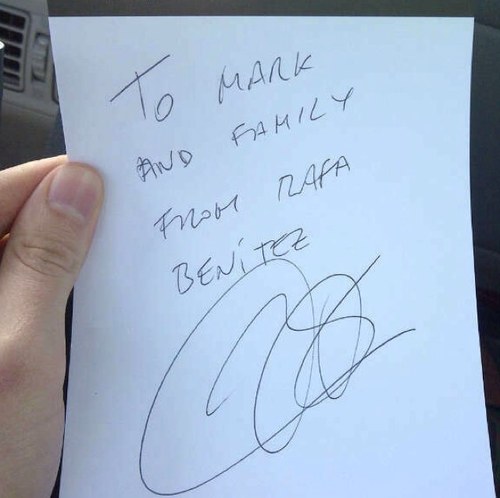 To MARK
AND FAMILY
FROM RAFA
BENiTEZ